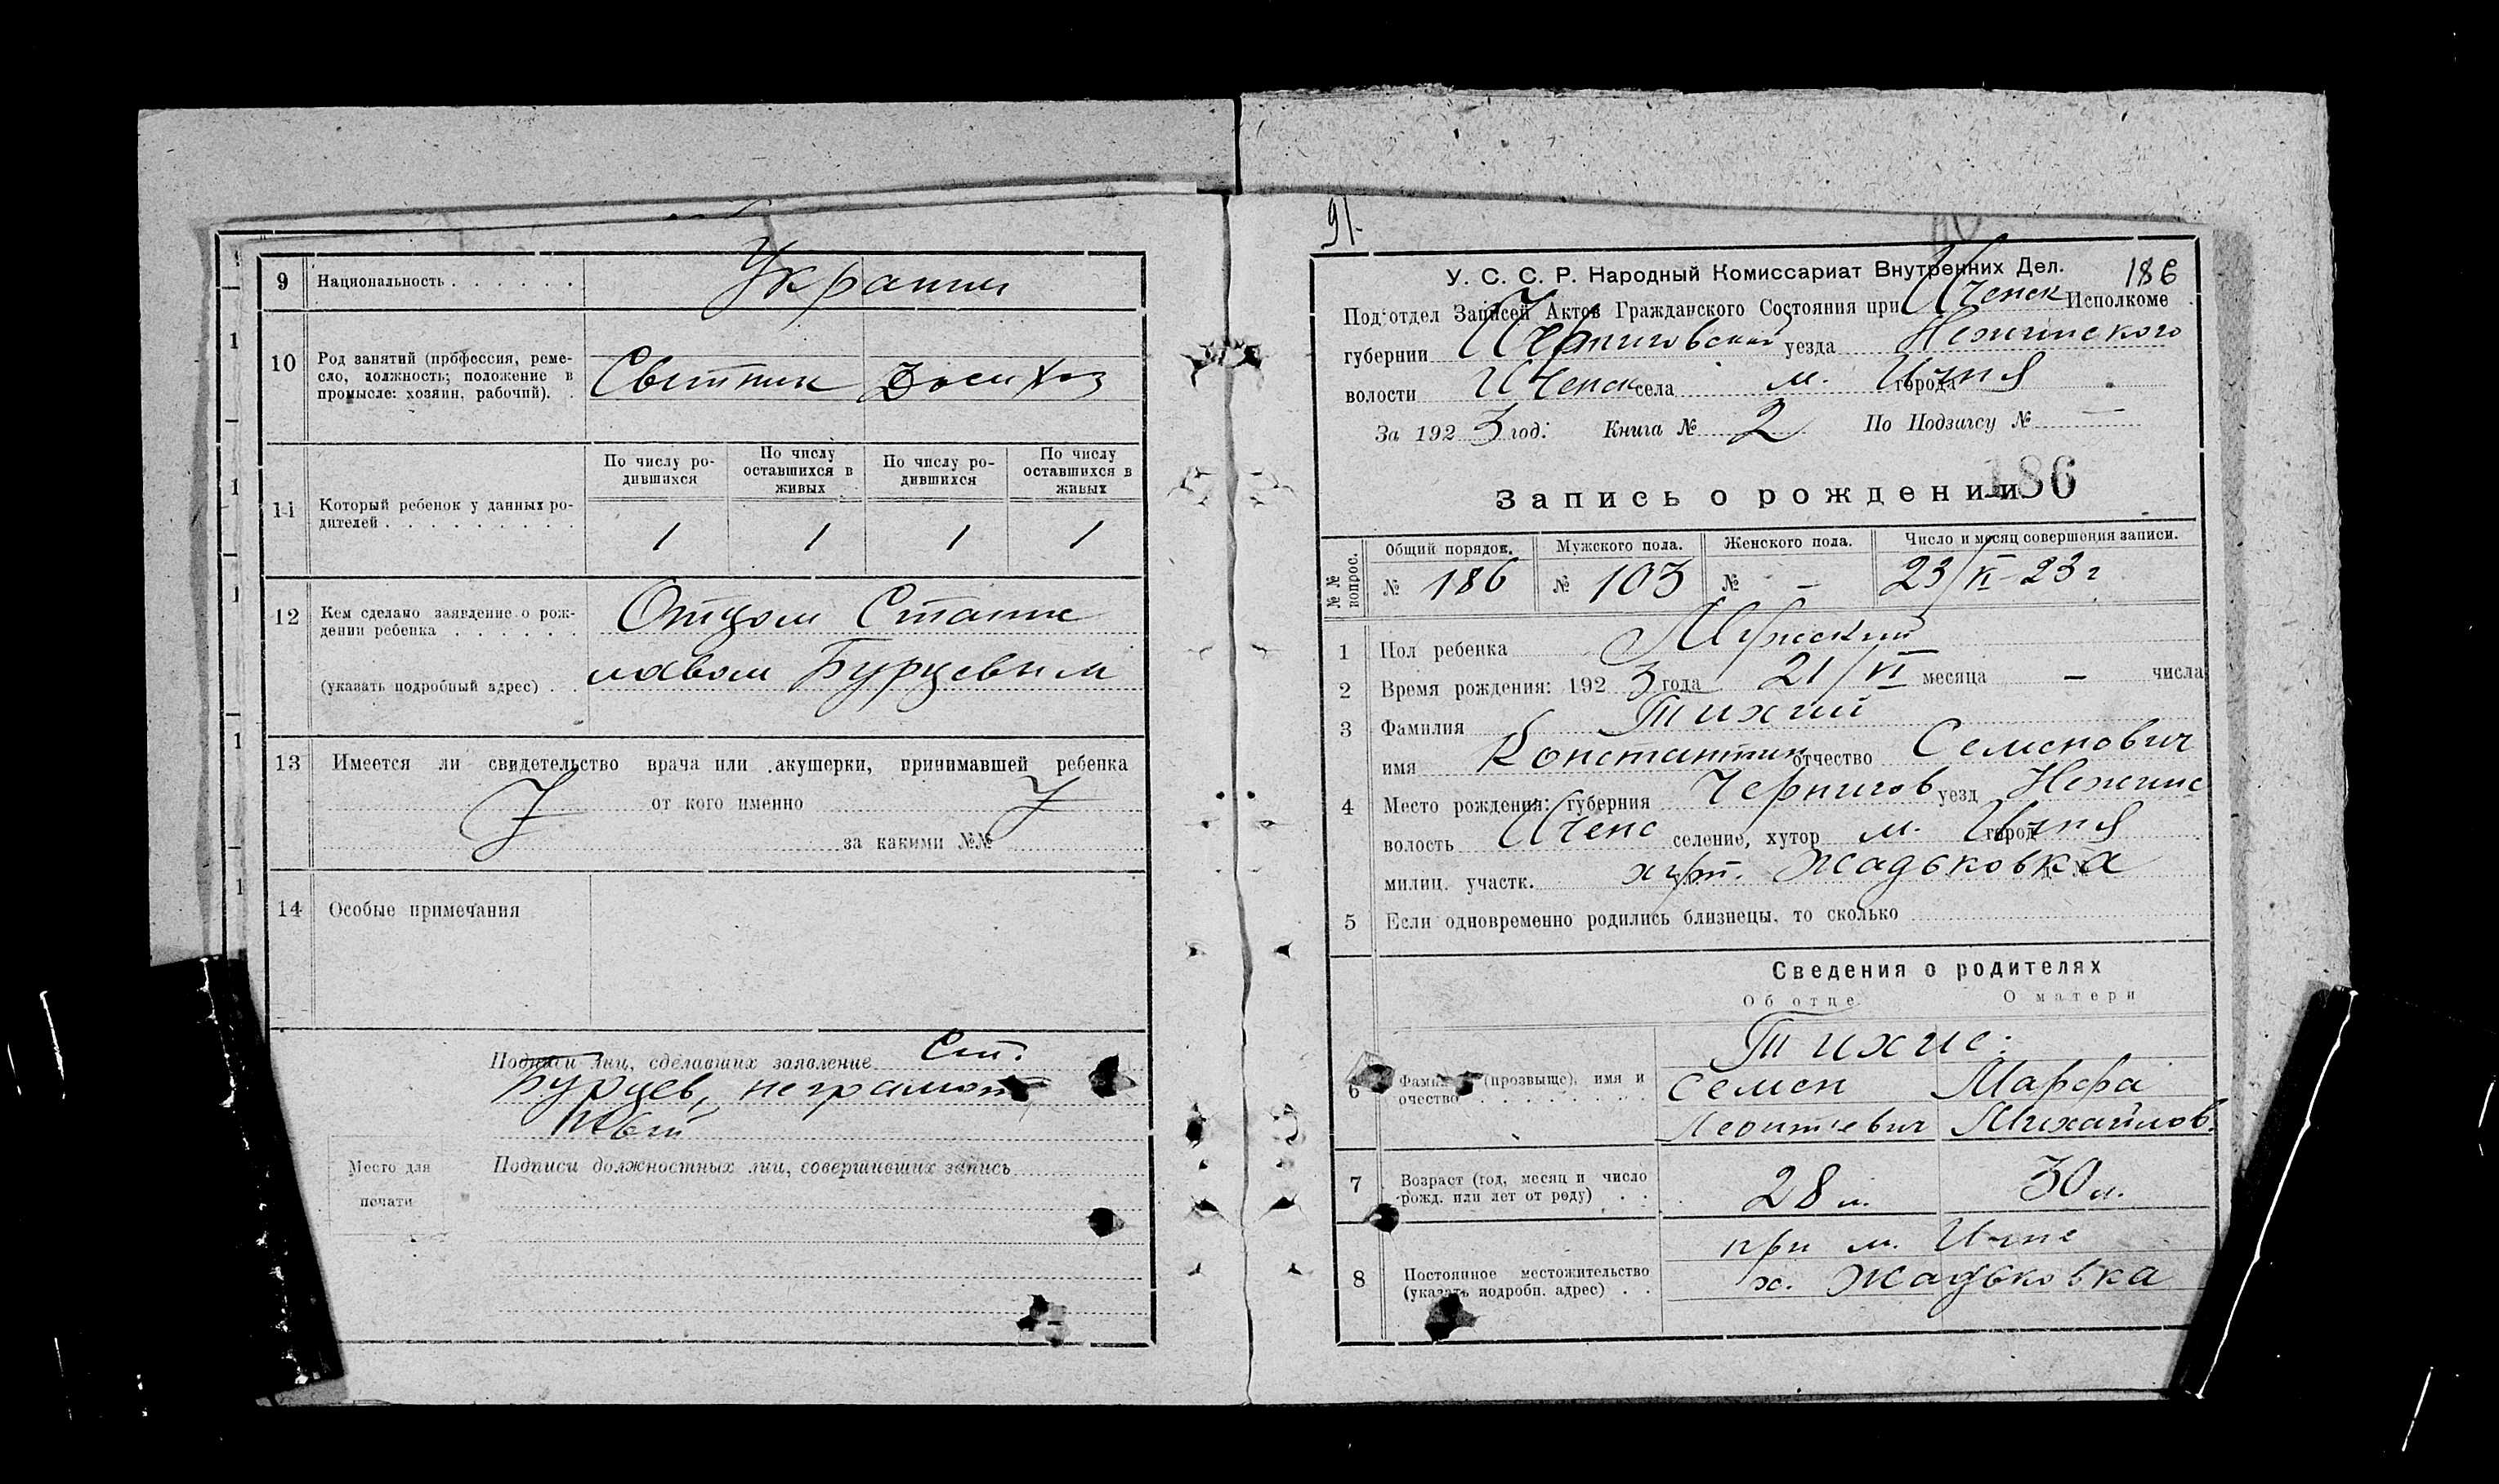 9 Национальность Украини
10 Род занятий (профессия, реме-
сло, должность; положение в
промысле: хозяин, рабочий).
Свитник Досихоз
11 Который ребенок у данных ро-
дителей
По числу ро-
дившихся
По числу
оставшихся в
живых
По числу ро-
дившихся
По числу
оставшихся в
живых
1 1 1 1
12 Кем сделано заявление о рож-
дении ребенка
Отцом Станис
(указать подробный адрес)
лавом Бурцевым
13 Имеется ли свидетельство врача или акушерки, принимавшей ребенка
от кого именно
за какими №№
14 Особые примечания
Подписи лиц, сделавших заявление Ст.
Бурцев, неграмот
ный
Место для
печати
Подписи должностных лиц, совершивших запись
91
У. С. С. Р. Народный Комиссариат Внутренних Дел. 186
Под'отдел Записей Актов Гражданского Состояния при Иченск Исполкоме
губернии Черниговской уезда Нежинского
волости Иченск села м. города Ичня
За 192 3 год: Книга № 2 По Подзагсу № —
Запись о рождении
186
№№ вопрос.
Общий порядок. Мужского пола. Женского пола. Число и месяц совершения записи.
№ 186 № 103 № – 23/VI-23 г
1 Пол ребенка Мужский
2 Время рождения: 192 3 года 21/VI месяца – числа
3 Фамилия Тихий
имя Константин отчество Семенович
4 Место рождения: губерния Чернигов уезд Нежинс
волость Иченс селение, хутор м. город Ичня
милиц. участк. хут. Жадьковка
5 Если одновременно родились близнецы, то сколько
Сведения о родителях
Об отце О матери
6 (прозвище), имя и
отчество
Тихие:
Семен Марфа
Леонтиевич Михайлов.
7 Возраст (год, месяц и число
рожд. или лет от роду)
28 л. 30 л.
8 Постоянное местожительство
(указать подробн. адрес)
при м. Ичне
х. Жадьковка